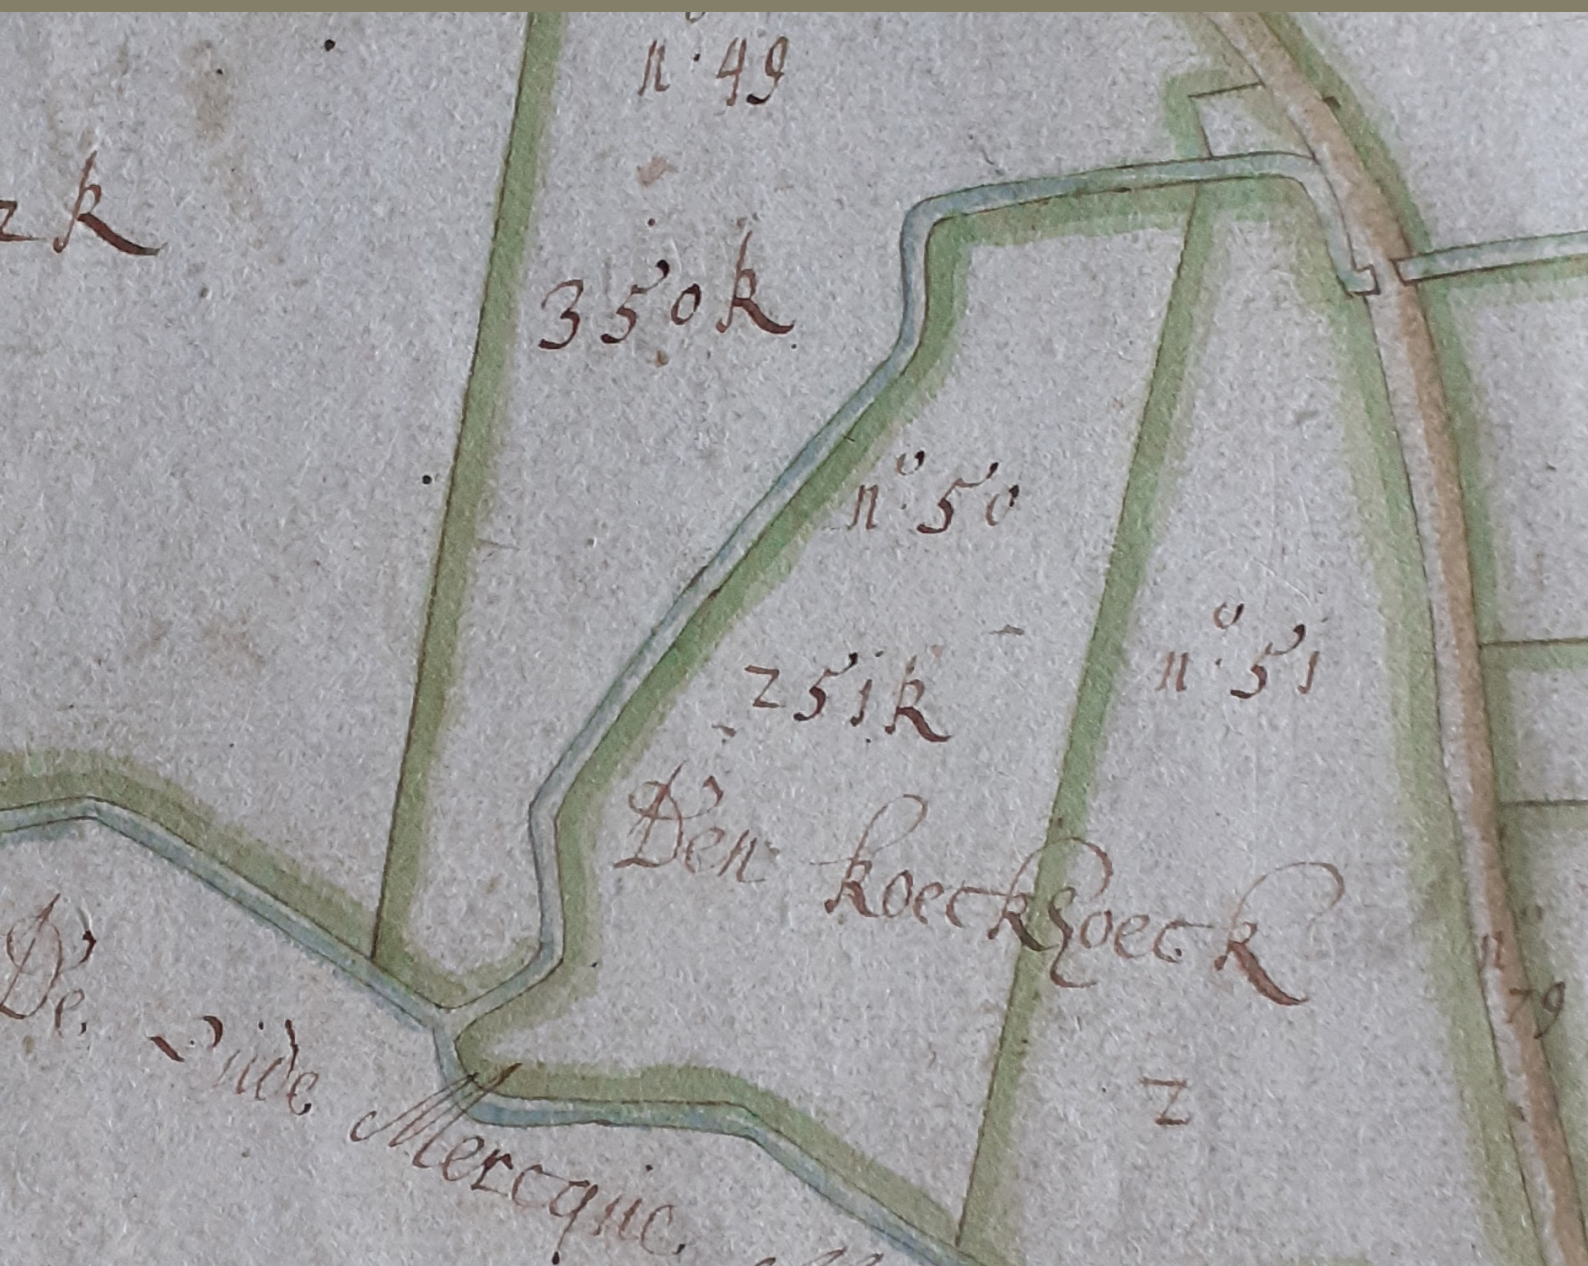 n° 49
2k
350k
n° 50
251k
n° 51
Den koeckhoeck
n° 79
De oude Mercque
2